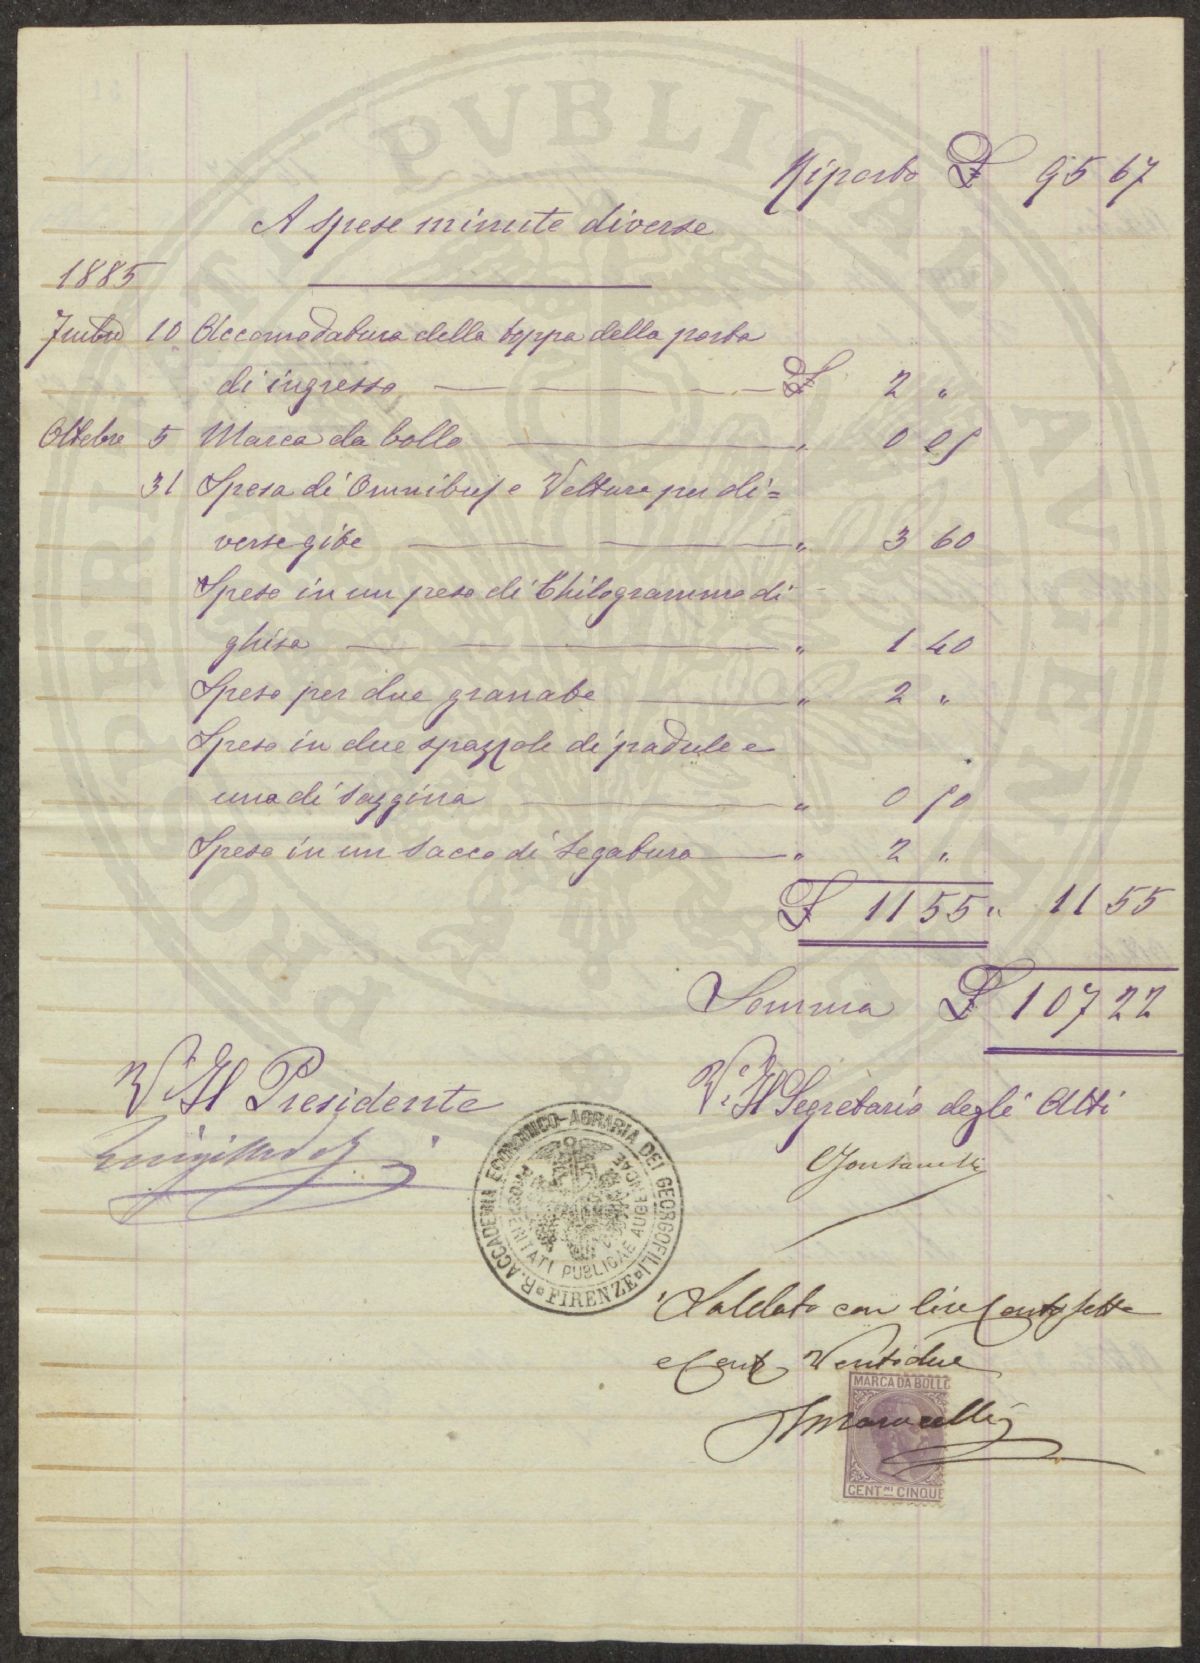 Riporto £ 95 67
A spese minute diverse
1885
7mbre 10 Accomodatura della toppa della porta
di ingresso £ 2 "
Ottobre 5 Marca da bollo " 0 05
31 Spesa di Omnibus e Vetture per di=
verse gite " 3 60
Speso in un peso di Chilogrammo di
ghisa " 1 40
Speso per due granate " 2 "
Speso in due spazzole di padule e
una di saggina " 0 50
Speso in un sacco di segatura " 2 "
£ 11 55 " 11 55
Somma £ 107 22
V.° Il Presidente
V.° Il Segretario degli Atti
R. ACCADEMIA ECONOMICO-AGRARIA DEI GEORGOFILI
FIRENZE
PROSPERITATI PUBLICAE AUGENDAE
Saldato con lire Centosette
e Cent Ventidue
MARCA DA BOLLO
CENT.MI CINQUE
PROSPERITATI PVBLICAE AVGENDAE